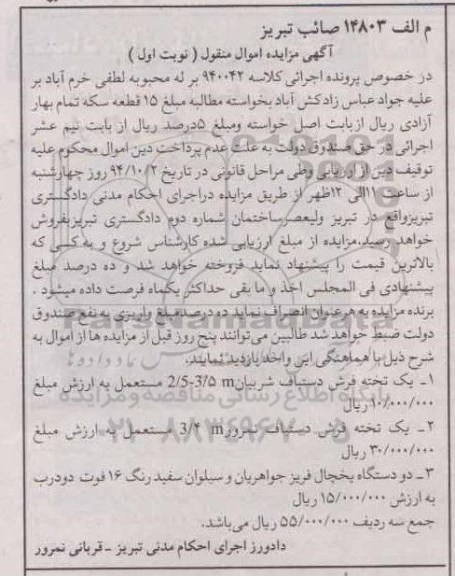 م الف ۱۴۸۰۳ صائب تبریز
آگهی مزایده اموال منقول ( نوبت اول )
در خصوص پرونده اجرائی کلاسه ۹۴۰۰۴۲ بر له محبوبه لطفی خرم آباد بر
علیه جواد عباس زادکش آباد بخواسته مطالبه مبلغ ۱۵ قطعه سکه تمام بهار
آزادی ریال ازبابت اصل خواسته ومبلغ ۵درصد ریال از بابت نیم عشر
اجرائی در حق صندوق دولت به علت عدم پرداخت دین اموال محکوم علیه
توقیف دین از ارزیابی وطی مراحل قانونی در تاریخ ۹۴/۱۰/۲ روز چهارشنبه
از ساعت ۱۱الی ۱۲ظهر از طریق مزایده دراجرای احکام مدنی دادگستری
تبریزواقع در تبریز ولیعصرساختمان شماره دوم دادگستری تبریزبفروش
خواهد رسید.مزایده از مبلغ ارزیابی شده کارشناس شروع و به کسی که
بالاترین قیمت را پیشنهاد نماید فروخته خواهد شد و ده درصد مبلغ
پیشنهادی فی المجلس اخذ و ما بقی حداکثر یکماه فرصت داده میشود .
برنده مزایده به هرعنوان انصراف نماید ده درصدمبلغ واریزی به نفع صندوق
دولت ضبط خواهد شد طالبین می توانند پنج روز قبل از مزایده ها از اموال به
شرح ذیل با هماهنگی این واحد بازدید نمایند.
۱ـ یک تخته فرش دستباف شربیان 2/5-3/5 m مستعمل به ارزش مبلغ
۱۰/۰۰۰/۰۰۰ریال
۲ـ یک تخته فرش دستباف نمرور 3/۴ m مستعمل به ارزش مبلغ
۳۰/۰۰۰/۰۰۰ ریال
۳ـ دو دستگاه یخچال فریز جواهریان و سیلوان سفید رنگ ۱۶ فوت دودرب
به ارزش ۱۵/۰۰۰/۰۰۰ریال
جمع سه ردیف ۵۵/۰۰۰/۰۰۰ ریال می باشد.
دادورز اجرای احکام مدنی تبریز ـ قربانی نمرور
ParsNamadData
پایگاه اطلاع رسانی مناقصه و مزایده
۰۲۱-۸۸۳۴۹۶۷۰-۵